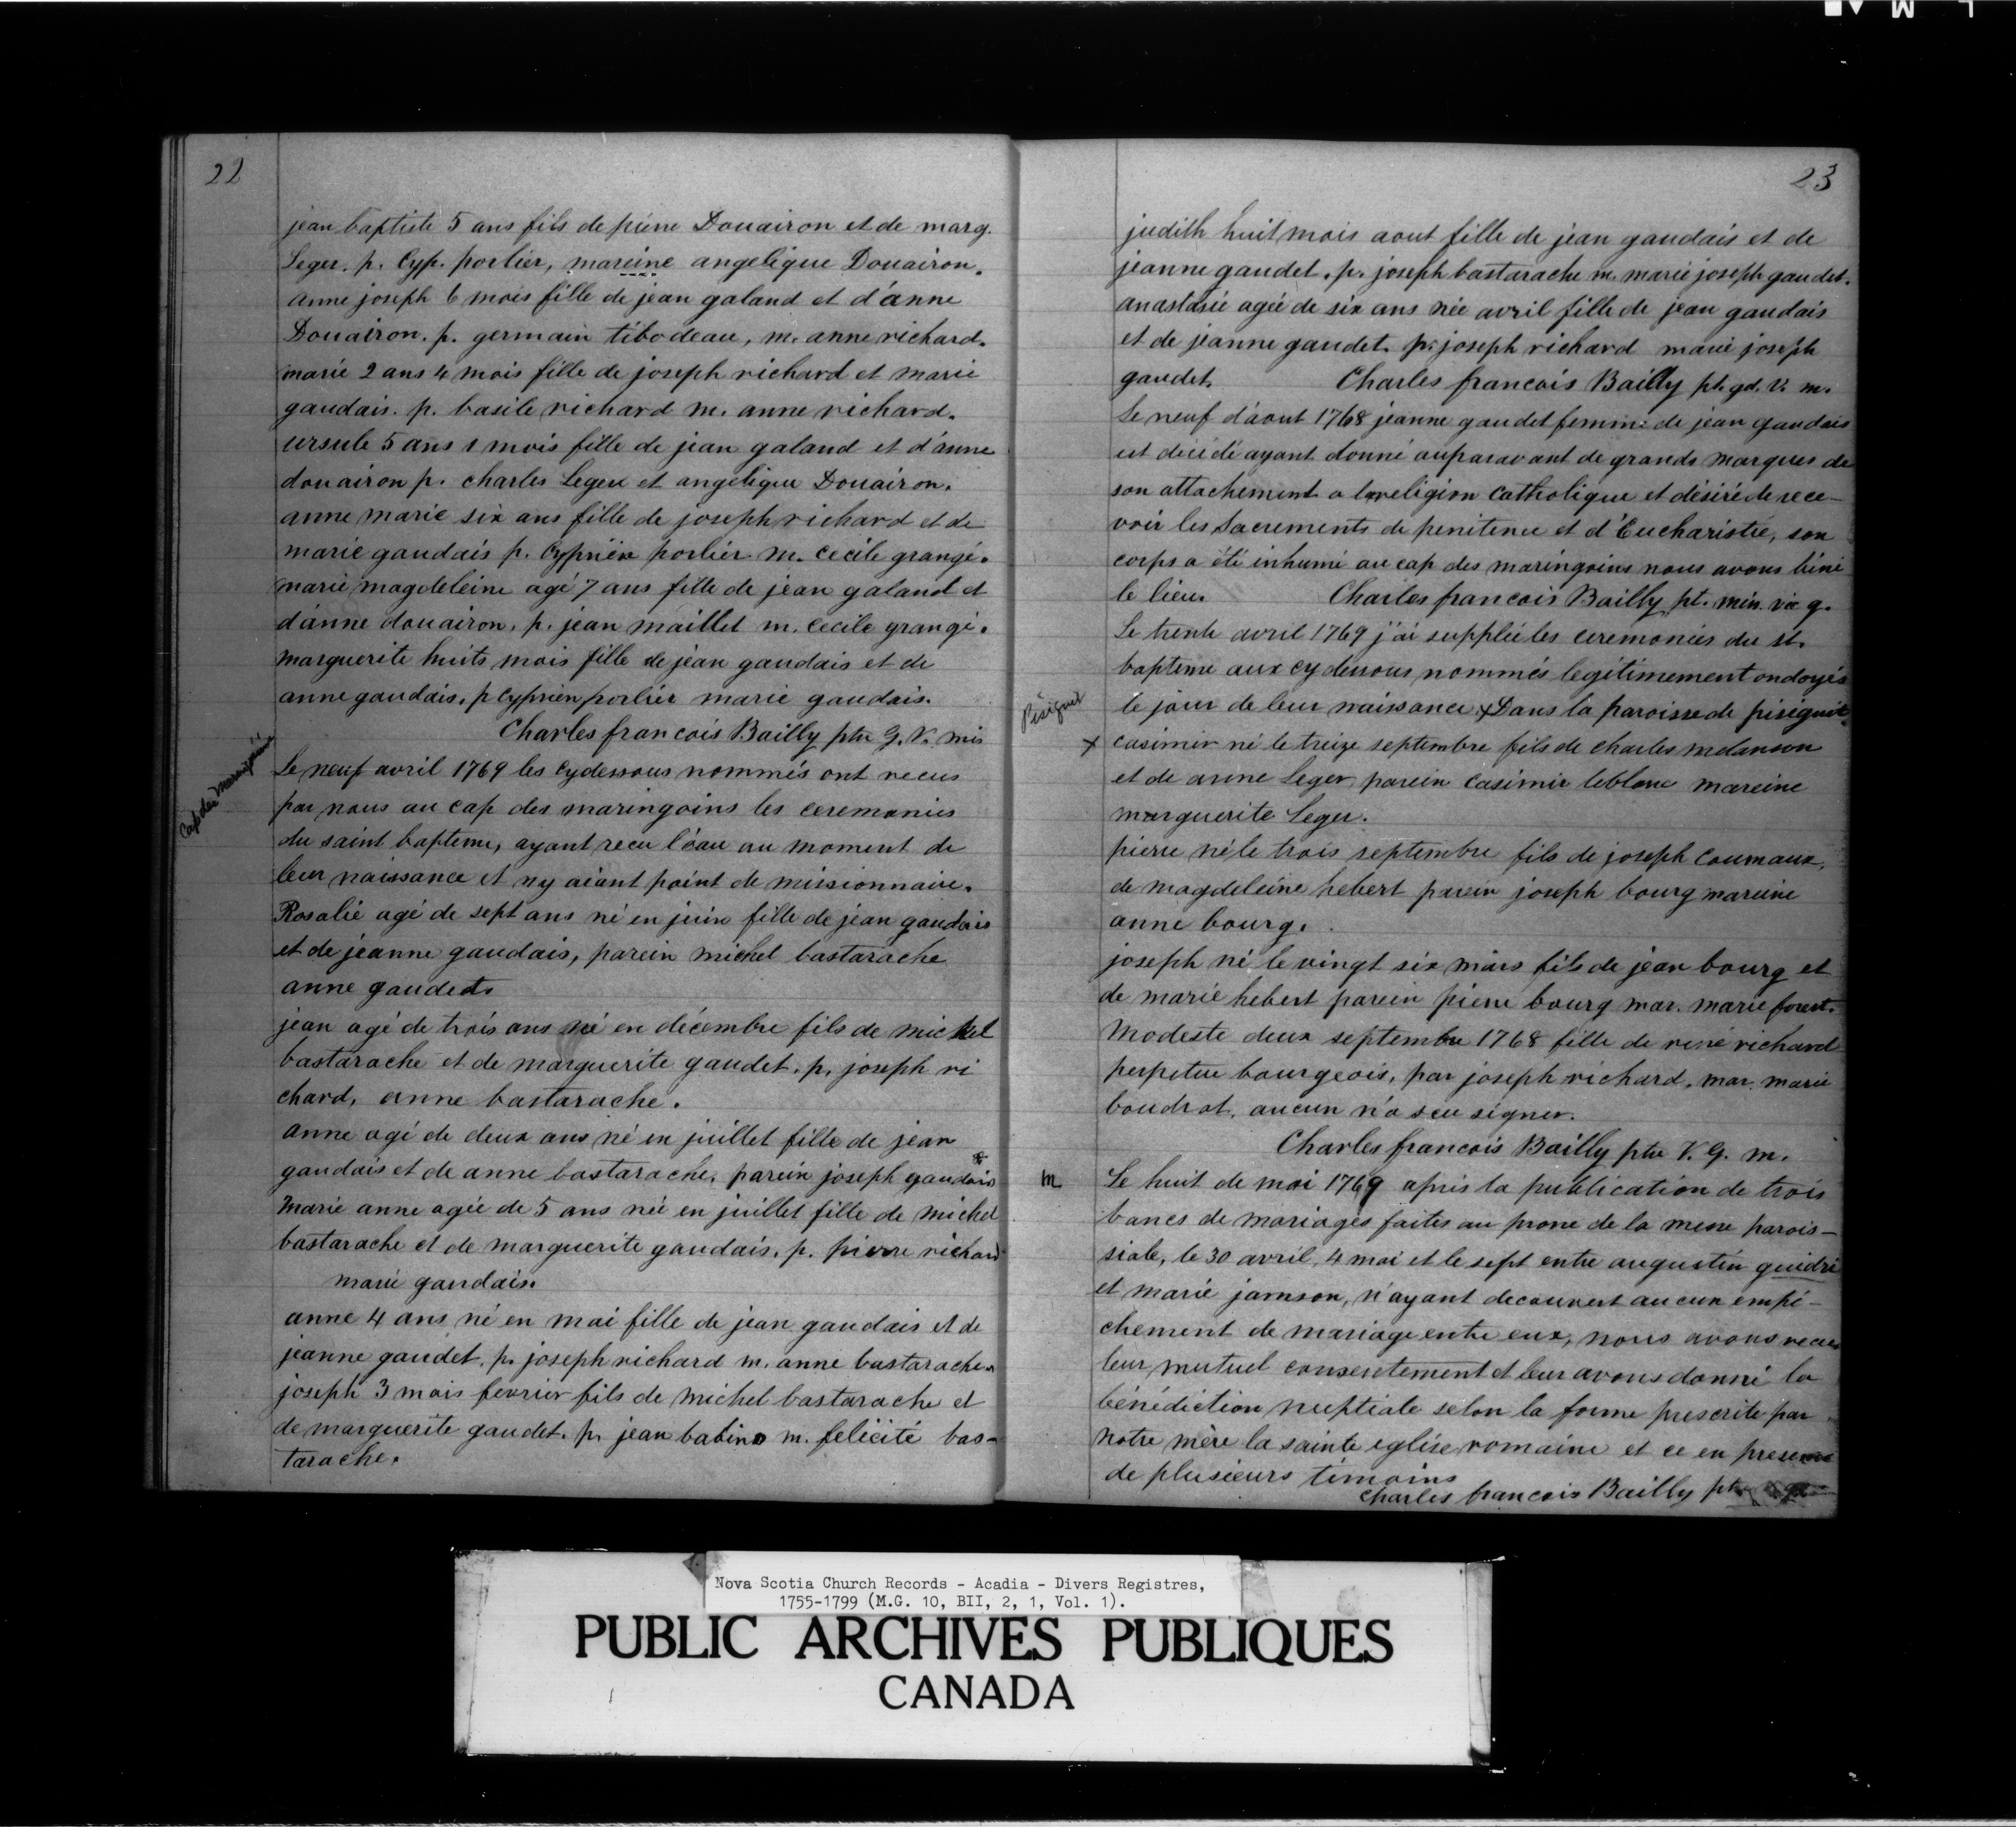 22
jean baptiste 5 ans fils de pierre Douairon et de marg.
Leger. p. Cyp. porlier, mareine angelique Douairon.
anne joseph 6 mois fille de jean galand et d'anne
Douairon. p. germain tibodeau, m. anne richard.
marie 2 ans 4 mois fille de joseph richard et marie
gaudais. p. basile richard m. anne richard.
ursule 5 ans 1 mois fille de jean galand et d'anne
douairon p. charles Leger et angelique Douairon.
anne marie six ans fille de joseph richard et de
marie gaudais p. Cyprien porlier m. cecile grangé.
marie magdeleine agé 7 ans fille de jean galand et
d'anne douairon, p. jean maillet m. cecile grangé.
marguerite huits mois fille de jean gaudais et de
anne gaudais, p Cyprien porlier marie gaudais.
Charles francois Bailly ptre G. V. mis
Cap des Maringouins
Le neuf avril 1769 les cydessous nommés ont recus
par nous au cap des maringoins les ceremonies
du saint bapteme, ayant recu l'eau au moment de
leur naissance et ny aiant point de missionnaire.
Rosalie agé de sept ans né en juin fille de jean gaudais
et de jeanne gaudais, parein michel bastarache
anne gaudet.
jean agé de trois ans né en décembre fils de michel
bastarache et de marguerite gaudet. p. joseph ri
chard, anne bastarache.
anne agé de deux ans né en juillet fille de jean
gaudais et de anne bastarache, parein joseph gaudais
Marie anne agée de 5 ans née en juillet fille de michel
bastarache et de marguerite gaudais. p. pierre richard
marie gaudais.
anne 4 ans né en mai fille de jean gaudais et de
jeanne gaudet. p. joseph richard m. anne bastarache.
joseph 3 mois fevrier fils de michel bastarache et
de marguerite gaudet. p. jean babino m. felicité bas-
tarache.
23
judith huit mois aout fille de jean gaudais et de
jeanne gaudet. p. joseph bastarache m. marie joseph gaudet.
anastasie agée de six ans née avril fille de jean gaudais
et de jeanne gaudet. p. joseph richard marie joseph
gaudet. Charles francois Bailly pt. gd. V. m.
Le neuf d'aout 1768 jeanne gaudet femme de jean gaudais
est décédé ayant donné auparavant de grands marques de
son attachement a la religion catholique et désiré de rece-
voir les Sacrements de penitence et d'Eucharistie, son
corps a été inhumé au cap des maringoins nous avons béni
le lieu. Charles francois Bailly pt. mis. vic g.
Le trente avril 1769 j'ai suppléé les ceremonies du st.
bapteme aux cydessous nommés legitimement ondoyés
pisiguit
le jour de leur naissance x Dans la paroisse de pisiguit
x casimir né le treize septembre fils de charles melanson
et de anne Leger, parein casimir leblanc mareine
marguerite Leger.
pierre né le trois septembre fils de joseph Coumaux,
de magdeleine hebert parein joseph bourg mareine
anne bourg.
joseph né le vingt six mars fils de jean bourg et
de marie hebert parein pierre bourg mar. marie forest.
Modeste deux septembre 1768 fille de rené richard
perpetue bourgeois, par joseph richard. mar. marie
boudrot, aucun n'a sçu signer.
Charles francois Bailly ptre V. G. m.
m Le huit de mai 1769 apris la publication de trois
bancs de mariages faites au prone de la messe parois-
siale, le 30 avril, 4 mai et le sept entre augustin guidri
et marie jamson, n'ayant decouvert aucun empê-
chement de mariage entre eux, nous avons recus
leur mutuel consentement et leur avons donné la
bénédiction nuptiale selon la forme prescrite par
notre mère la sainte eglise romaine et ce en presence
de plusieurs témoins
Charles francois Bailly pt
Nova Scotia Church Records - Acadia - Divers Registres,
1755-1799 (M.G. 10, BII, 2, 1, Vol. 1).
PUBLIC ARCHIVES PUBLIQUES
CANADA